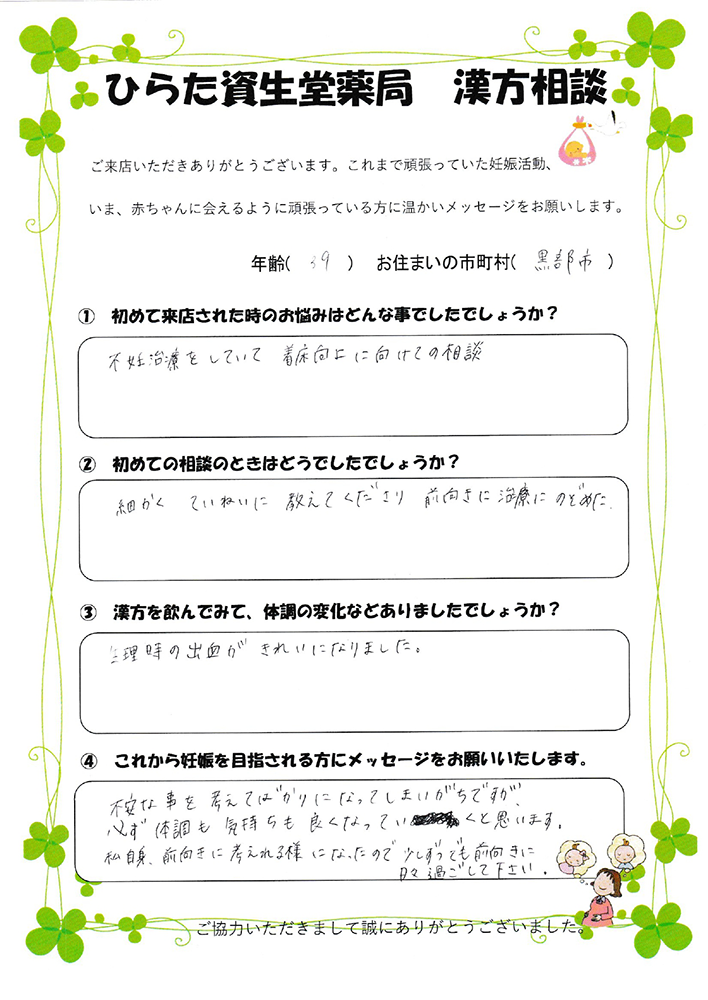 ひらた資生堂薬局　漢方相談
ご来店いただきありがとうございます。これまで頑張っていた妊娠活動、
いま、赤ちゃんに会えるように頑張っている方に温かいメッセージをお願いします。
年齢( 39 )　お住まいの市町村( 黒部市 )
①　初めて来店された時のお悩みはどんな事でしたでしょうか？
不妊治療をしていて 着床向上に向けての相談
②　初めての相談のときはどうでしたでしょうか？
細かく ていねいに 教えてくださり 前向きに治療にのぞめた.
③　漢方を飲んでみて、体調の変化などありましたでしょうか？
生理時の出血が きれいになりました。
④　これから妊娠を目指される方にメッセージをお願いいたします。
不安な事を考えてばかりになってしまいがちですが、
必ず体調も気持ちも良くなっていくと思います.
私自身、前向きに考えれる様になったので 少しずつでも前向きに
日々過ごして下さい.
ご協力いただきまして誠にありがとうございました。